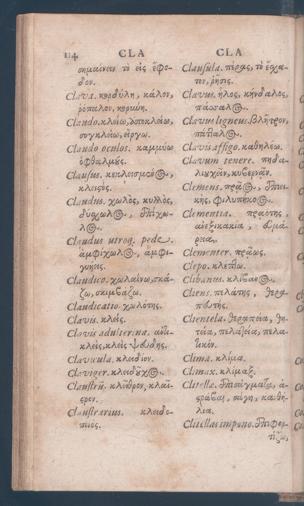 114 CLA CLA
σημαίνει τὸ εἰς ἔφο-
δον.
Clava. κορδύλη, κάλον,
ῥόπαλον, κορύνη.
Claudo. κλείω, ἀποκλείω,
συγκλείω, εἴργω.
Claudo oculos. καμμύω
ὀφθαλμούς.
Clausus. κεκλεισμένος,
κλειτός.
Claudus. χωλὸς, κυλλὸς,
Claudus utroq. pede.
ἀμφίχωλος, ἀμφι-
γυήεις.
Claudico. χωλαίνω, σκά-
ζω, σκιμβάζω.
Claudicatio. χωλότης.
Clavis. κλείς.
Clavis adulterina.
κλεὶς, κλεὶς ψευδής.
Clavicula. κλειδίον.
Claviger. κλειδοῦχος.
Claustrū. κλεῖθρον,
Claustrarius. κλειδο-
ποιός.
Clausula. πέρας, τὸ ἔσχα-
τον, ῥῆσις.
Clavus. ἧλος, κύνδαλος,
πάσσαλος.
Clavus ligneus. βλῆτρον,
πάτταλος.
Clavis affigo. καθηλόω.
Clavum tenere. πηδα-
λιουχεῖν, κυβερνᾶν.
Clemens. πρᾷος, ἐπιει-
κὴς,
Clementia. πρᾳότης,
ἀνεξικακία,
Clementer. πρᾴως.
Clepo. κλέπτω.
Clibanus. κλίβανος.
Cliens. πελάτης,
Clientela. θεραπεία, θη-
τεία, πελατεία, πελα-
τικόν.
Clima. κλίμα.
Climax. κλίμαξ.
Clitellæ. ἐπισάγματα, ἀ-
στράβαι, σάγη, κανθή-
λια.
Clitellas impono. ἐπιφορ-
τίζω,